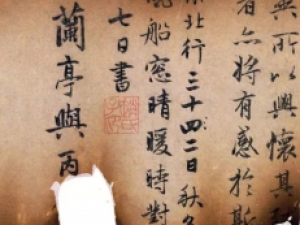 異所以興懷其
者亦將有感於斯
北行三十四二日秋冬
船窗晴暖時對
七日書
蘭亭與丙